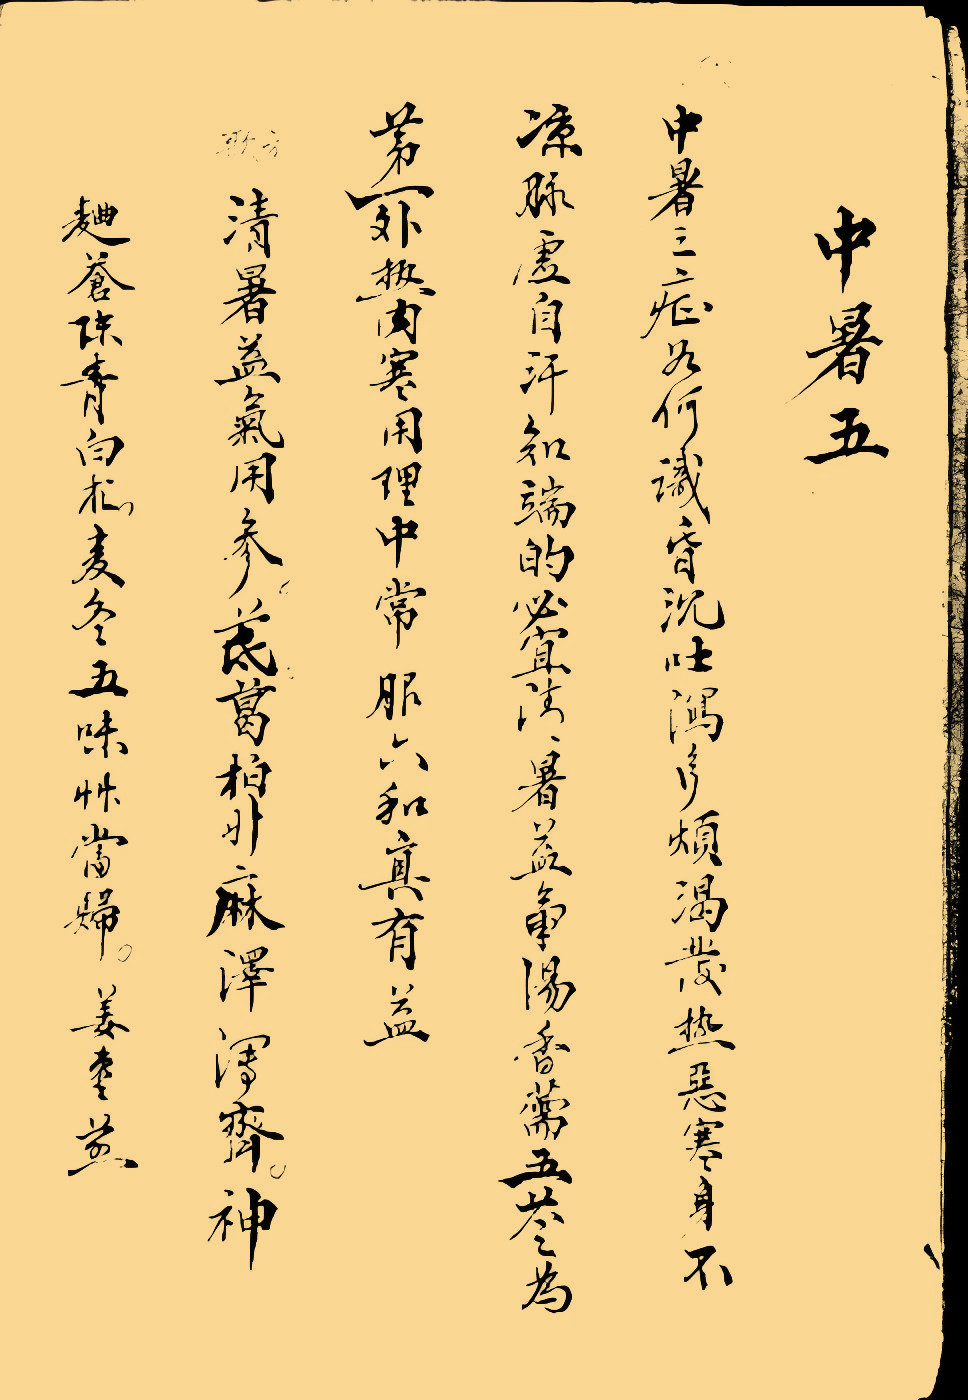 中暑五
中暑之症如何識昏沉吐瀉多煩渴發热惡寒身不
凉脉虚自汗知端的必宜清暑益氣湯香薷五苓為
苐一外热内寒用理中常服六和真有益
清暑益氣用參芪葛柏升麻澤瀉齊神
麯蒼陳青白朮麦冬五味艸當歸姜枣煎